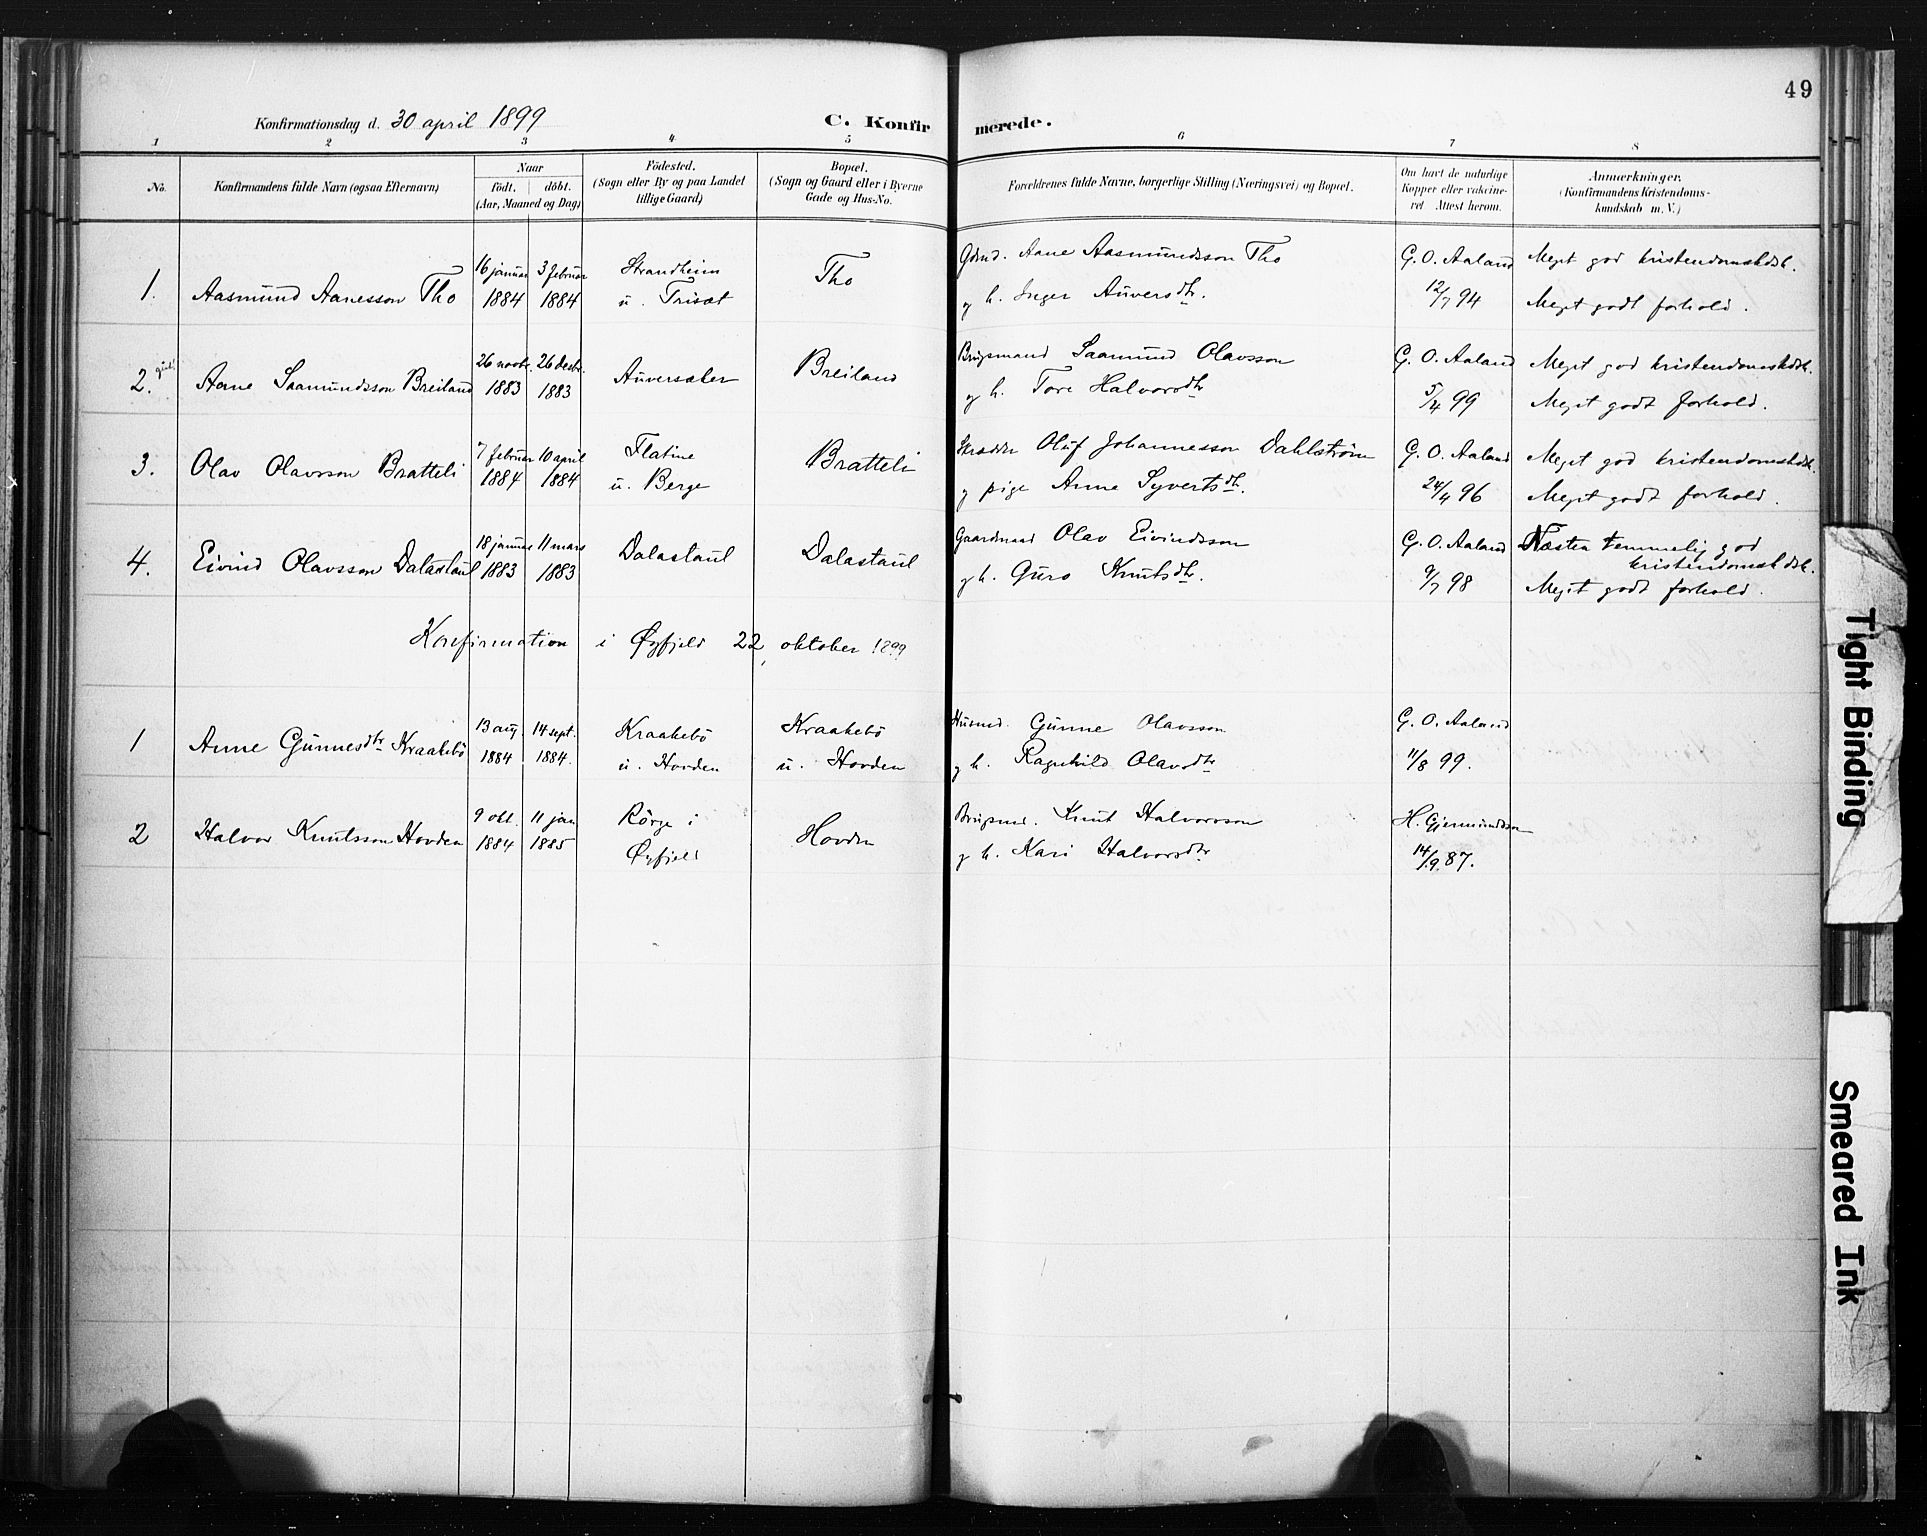 49
Konfirmationsdag d. 30 april 1899 C. Konfirmerede.
1 2 3 4 5 6 7 8
No. Konfirmandens fulde Navn (ogsaa Efternavn) Naar født. døbt. (Aar, Maaned og Dag) Fødested. (Sogn eller By og paa Landet tillige Gaard) Bopæl. (Sogn og Gaard eller i Byerne Gade og Hus-No. Forældrenes fulde Navne, borgerlige Stilling (Næringsvei) og Bopæl. Om havt de naturlige Kopper eller vaksineret Attest herom. Anmerkninger. (Konfirmandens Kristendomskundskab m. V.)
16 januar 3 februar Strandheim Tho Gbmd. Aane Aasmundsson Tho G. O. Aaland Meget god kristendomskdsk.
1. Aasmund Aanesson Tho 1884 1884 u. Trisæt og h. Inger Auversdtr. 12/7 94 Meget godt forhold.
26 novbr. 26 desbr. Auversæter Breiland Brugsmand Saamund Olavsson G. O. Aaland Meget god kristendomskdsk.
2. Aane Saamundsson Breiland 1883 1883 og h. Tore Halvorsdtr 5/4 99 Meget godt forhold.
7 februar 10 april Flatine Bratteli Skrædder Oluf Johannesson Dahlstrøm G. O. Aaland Meget god kristendomskdsk.
3. Olav Olavsson Bratteli 1884 1884 u. Berge og pige Anne Syvertsdtr. 24/4 96 Meget godt forhold.
18 januar 11 mars Dalastaul Dalastaul Gaardmand Olav Eivindsson G. O. Aaland Næsten temmelig god kristendomskdsk.
4. Eivind Olavsson Dalastaul 1883 1883 og h. Guro Knutsdtr. 9/7 98 Meget godt forhold.
Konfirmation i Øyfjeld 22, oktober 1899
13 aug. 14 sept. Kraakebø Kraakebø Husmd. Gunne Olavsson G. O. Aaland
1 Anne Gunnesdtr Kraakebø 1884 1884. u. Hovden u. Hovden og h. Ragnhild Olavsdtr 11/8 99.
9 okt. 11 jan Rørge i Hovden Brugsmd. Knut Halvorsson H. Gjermundsson
2 Halvor Knutsson Hovden 1884 1885 Øyfjeld og h. Kari Halvorsdtr 14/9.87.
Tight Binding
Smeared Ink